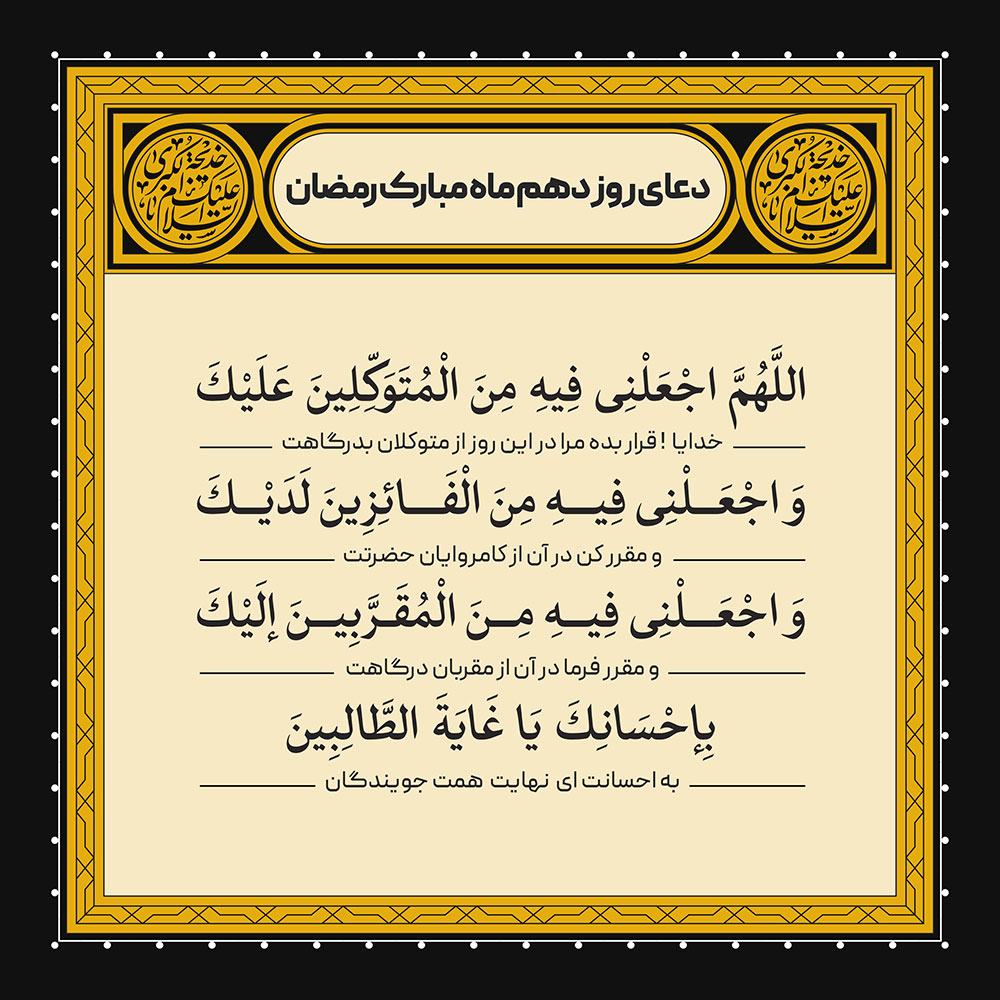 دعای روز دهم ماه مبارک رمضان
السلام علیک یا خدیجة الکبری
السلام علیک یا خدیجة الکبری
اللَّهُمَّ اجْعَلْنِی فِیهِ مِنَ الْمُتَوَکِّلِینَ عَلَیْكَ
خدایا ! قرار بده مرا در این روز از متوکلان بدرگاهت
وَ اجْعَلْنِی فِیهِ مِنَ الْفَائِزِینَ لَدَیْكَ
و مقرر کن در آن از کامروایان حضرتت
وَ اجْعَلْنِی فِیهِ مِنَ الْمُقَرَّبِینَ إِلَیْكَ
و مقرر فرما در آن از مقربان درگاهت
بِإِحْسَانِكَ یَا غَایَةَ الطَّالِبِینَ
به احسانت ای نهایت همت جویندگان